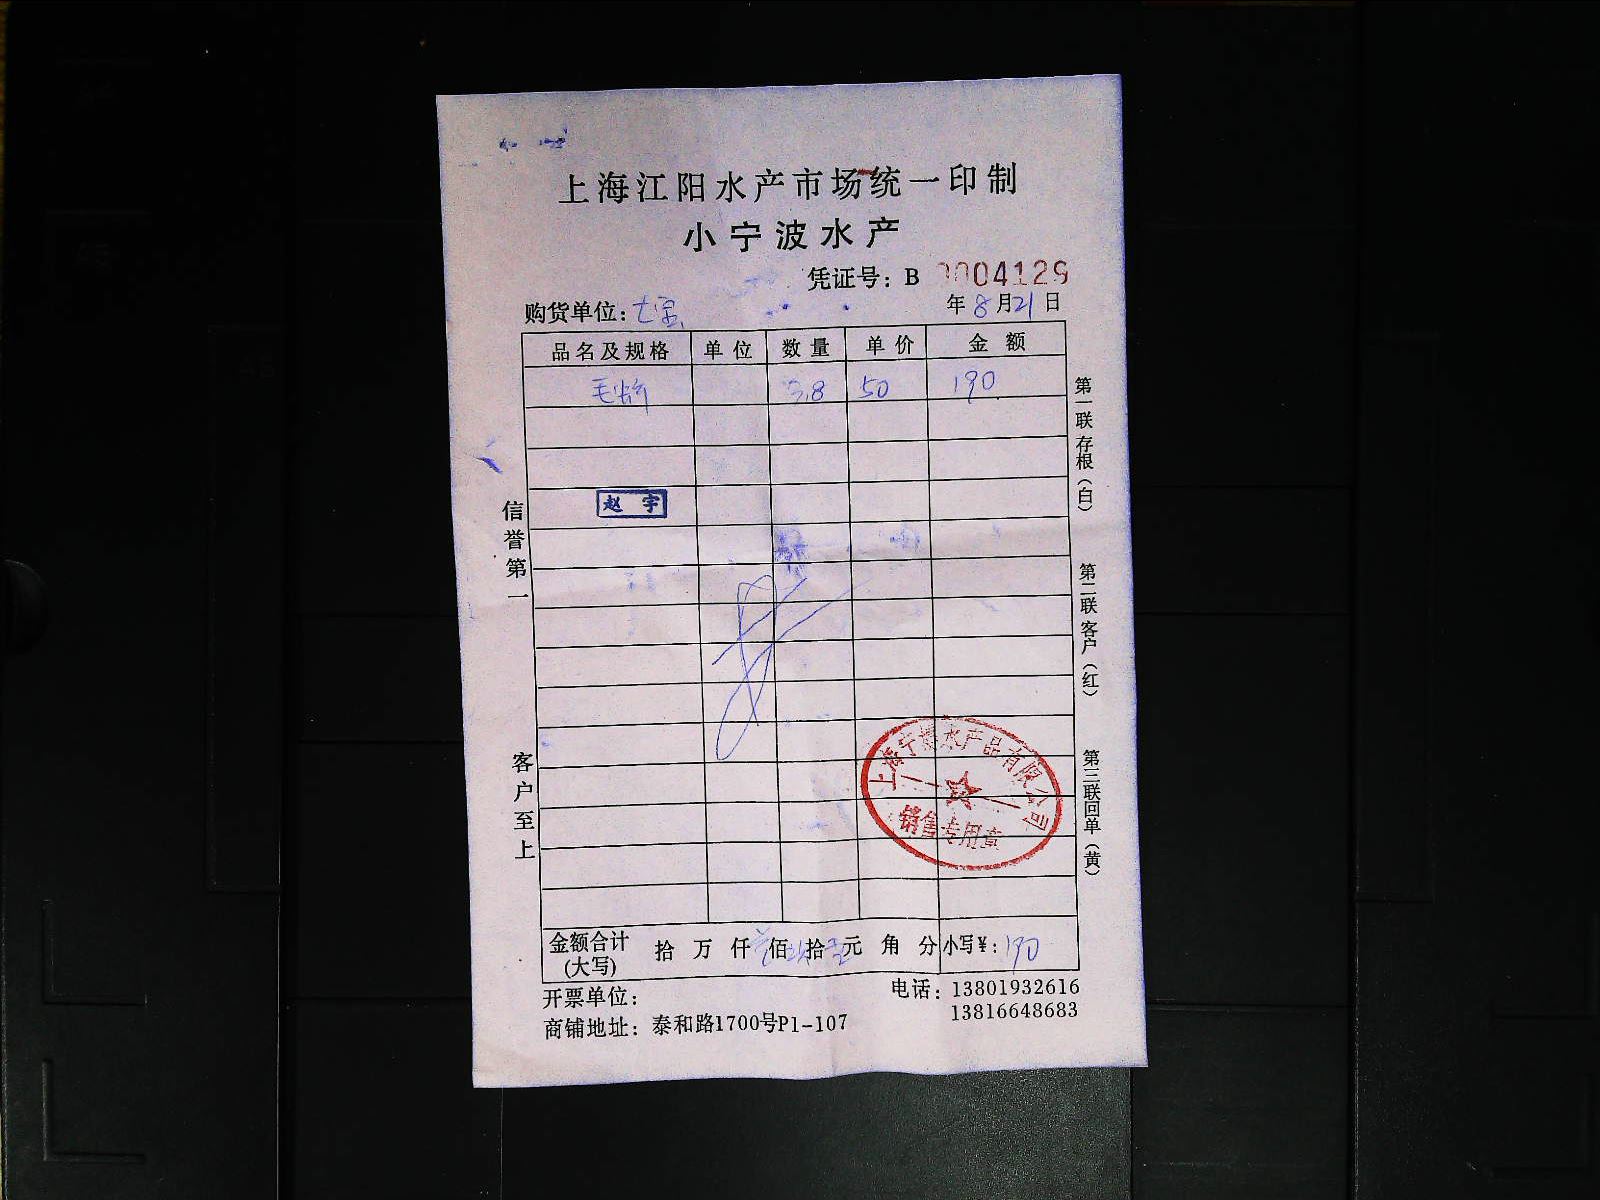 上海江阳水产市场统一印制
小宁波水产
凭证号：B 0004129
购货单位：七宝 年8月21日
品名及规格 单位 数量 单价 金额
毛 3.8 50 190
赵宇
信誉第一
客户至上
第一联存根（白）
第二联客户（红）
第三联回单（黄）
上海宁波水产品有限公司
销售专用章
金额合计(大写) 拾 万 仟 佰 拾 元 角 分 小写¥：190
开票单位：
电话：13801932616
13816648683
商铺地址：泰和路1700号P1-107